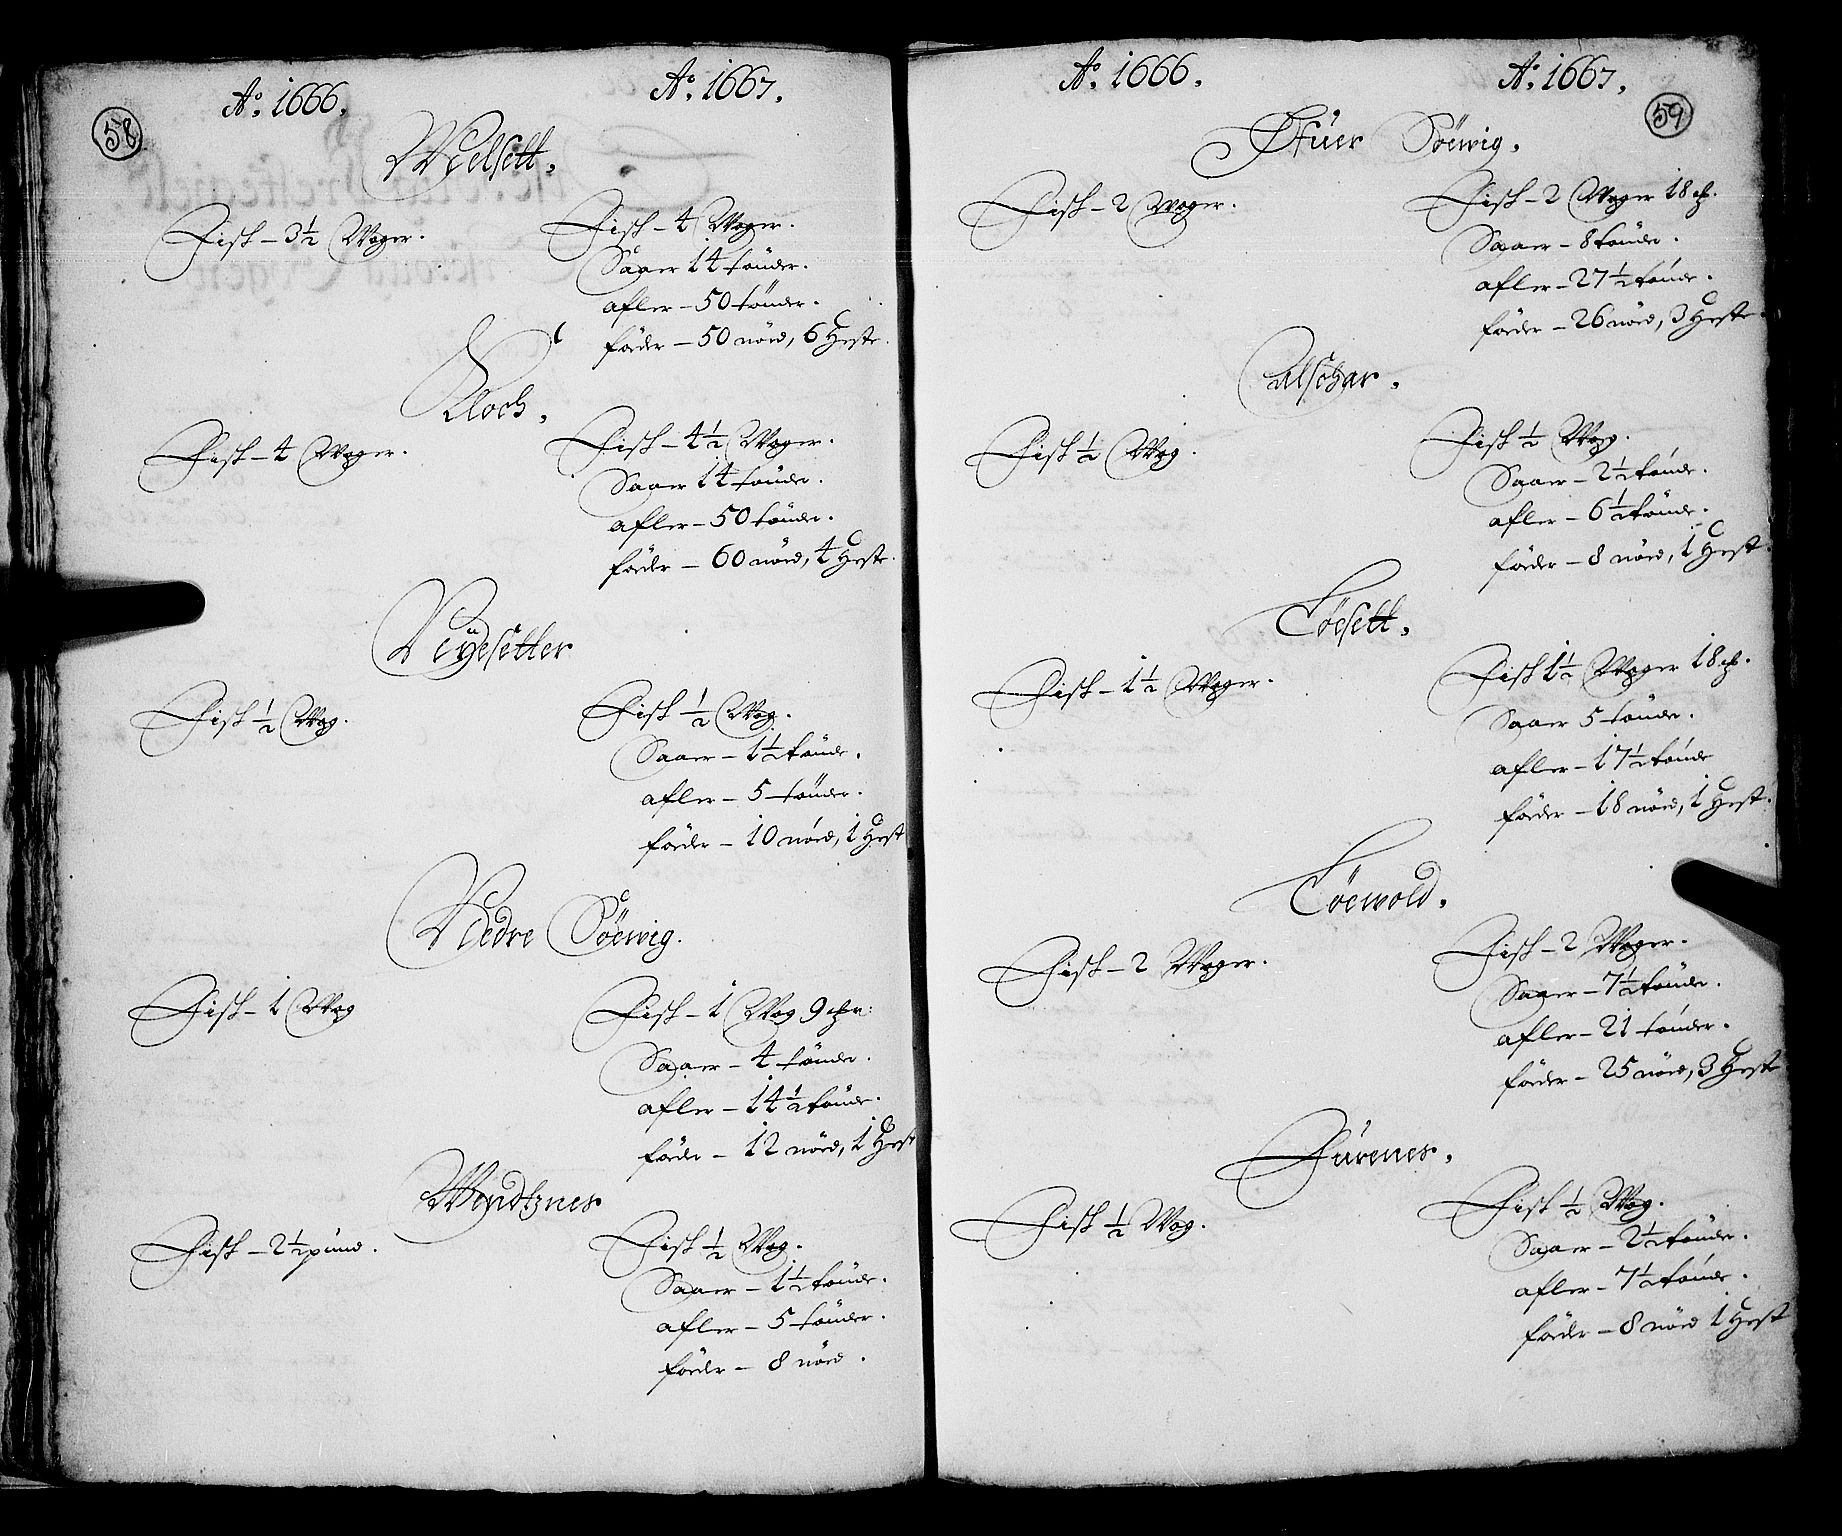 58
Ao. 1666.
Ao. 1667.
Wielsett.
Fisk - 3½ Woger.
Fisk - 4 Woger.
Saaer 14 tönder.
afler - 50 tönder.
föder - 50 nöed, 6 Heste.
Kloch.
Fisk - 4 Woger.
Fisk - 4½ Woger.
Saaer 14 tönder.
afler - 50 tönder.
föder - 60 nöed, 4 Heste.
Neÿesetter
Fisk ½ Wog.
Fisk ½ Wog.
Saaer - 1½ tönde.
afler - 5 tönder.
föder - 10 nöed, 1 Hest
Nedre Söewig.
Fisk - 1 Wog
Fisk - 1 Wog 9
Saaer - 4 tönder.
afler - 14½ tönde.
föder - 12 nöed, 1 Hest
Wendtznes
Fisk - 2½ pund.
Fisk ½ Wog.
Saaer - 1½ tönde.
afler - 5 tönder.
föder - 8 nöed.
59
Ao. 1666.
Ao. 1667.
Øfuer Söewig.
Fisk - 2 Woger.
Fisk - 2 Woger 18
Saaer - 8 tönde.
afler - 27½ tönde.
föder - 26 nöed, 3 Heste.
Fisk ½ Wog.
Fisk ½ Wog.
Saaer - 2½ tönde.
afler - 6½ tönde.
föder - 8 nöed, 1 Hest.
Töesett.
Fisk - 1½ Woger.
Fisk 1½ Woger 18
Saaer 5 tönde.
afler - 17½ tönde
föder - 18 nöed, 1 Hest.
Töewold.
Fisk - 2 Woger.
Fisk - 2 Woger.
Saaer - 7½ tönde.
afler - 21 tönder.
föder - 25 nöed, 3 Heste
Furenes.
Fisk ½ Wog.
Fisk ½ Wog.
Saaer - 2½ tönde.
afler - 7½ tönde.
föder - 8 nöed 1 Hest